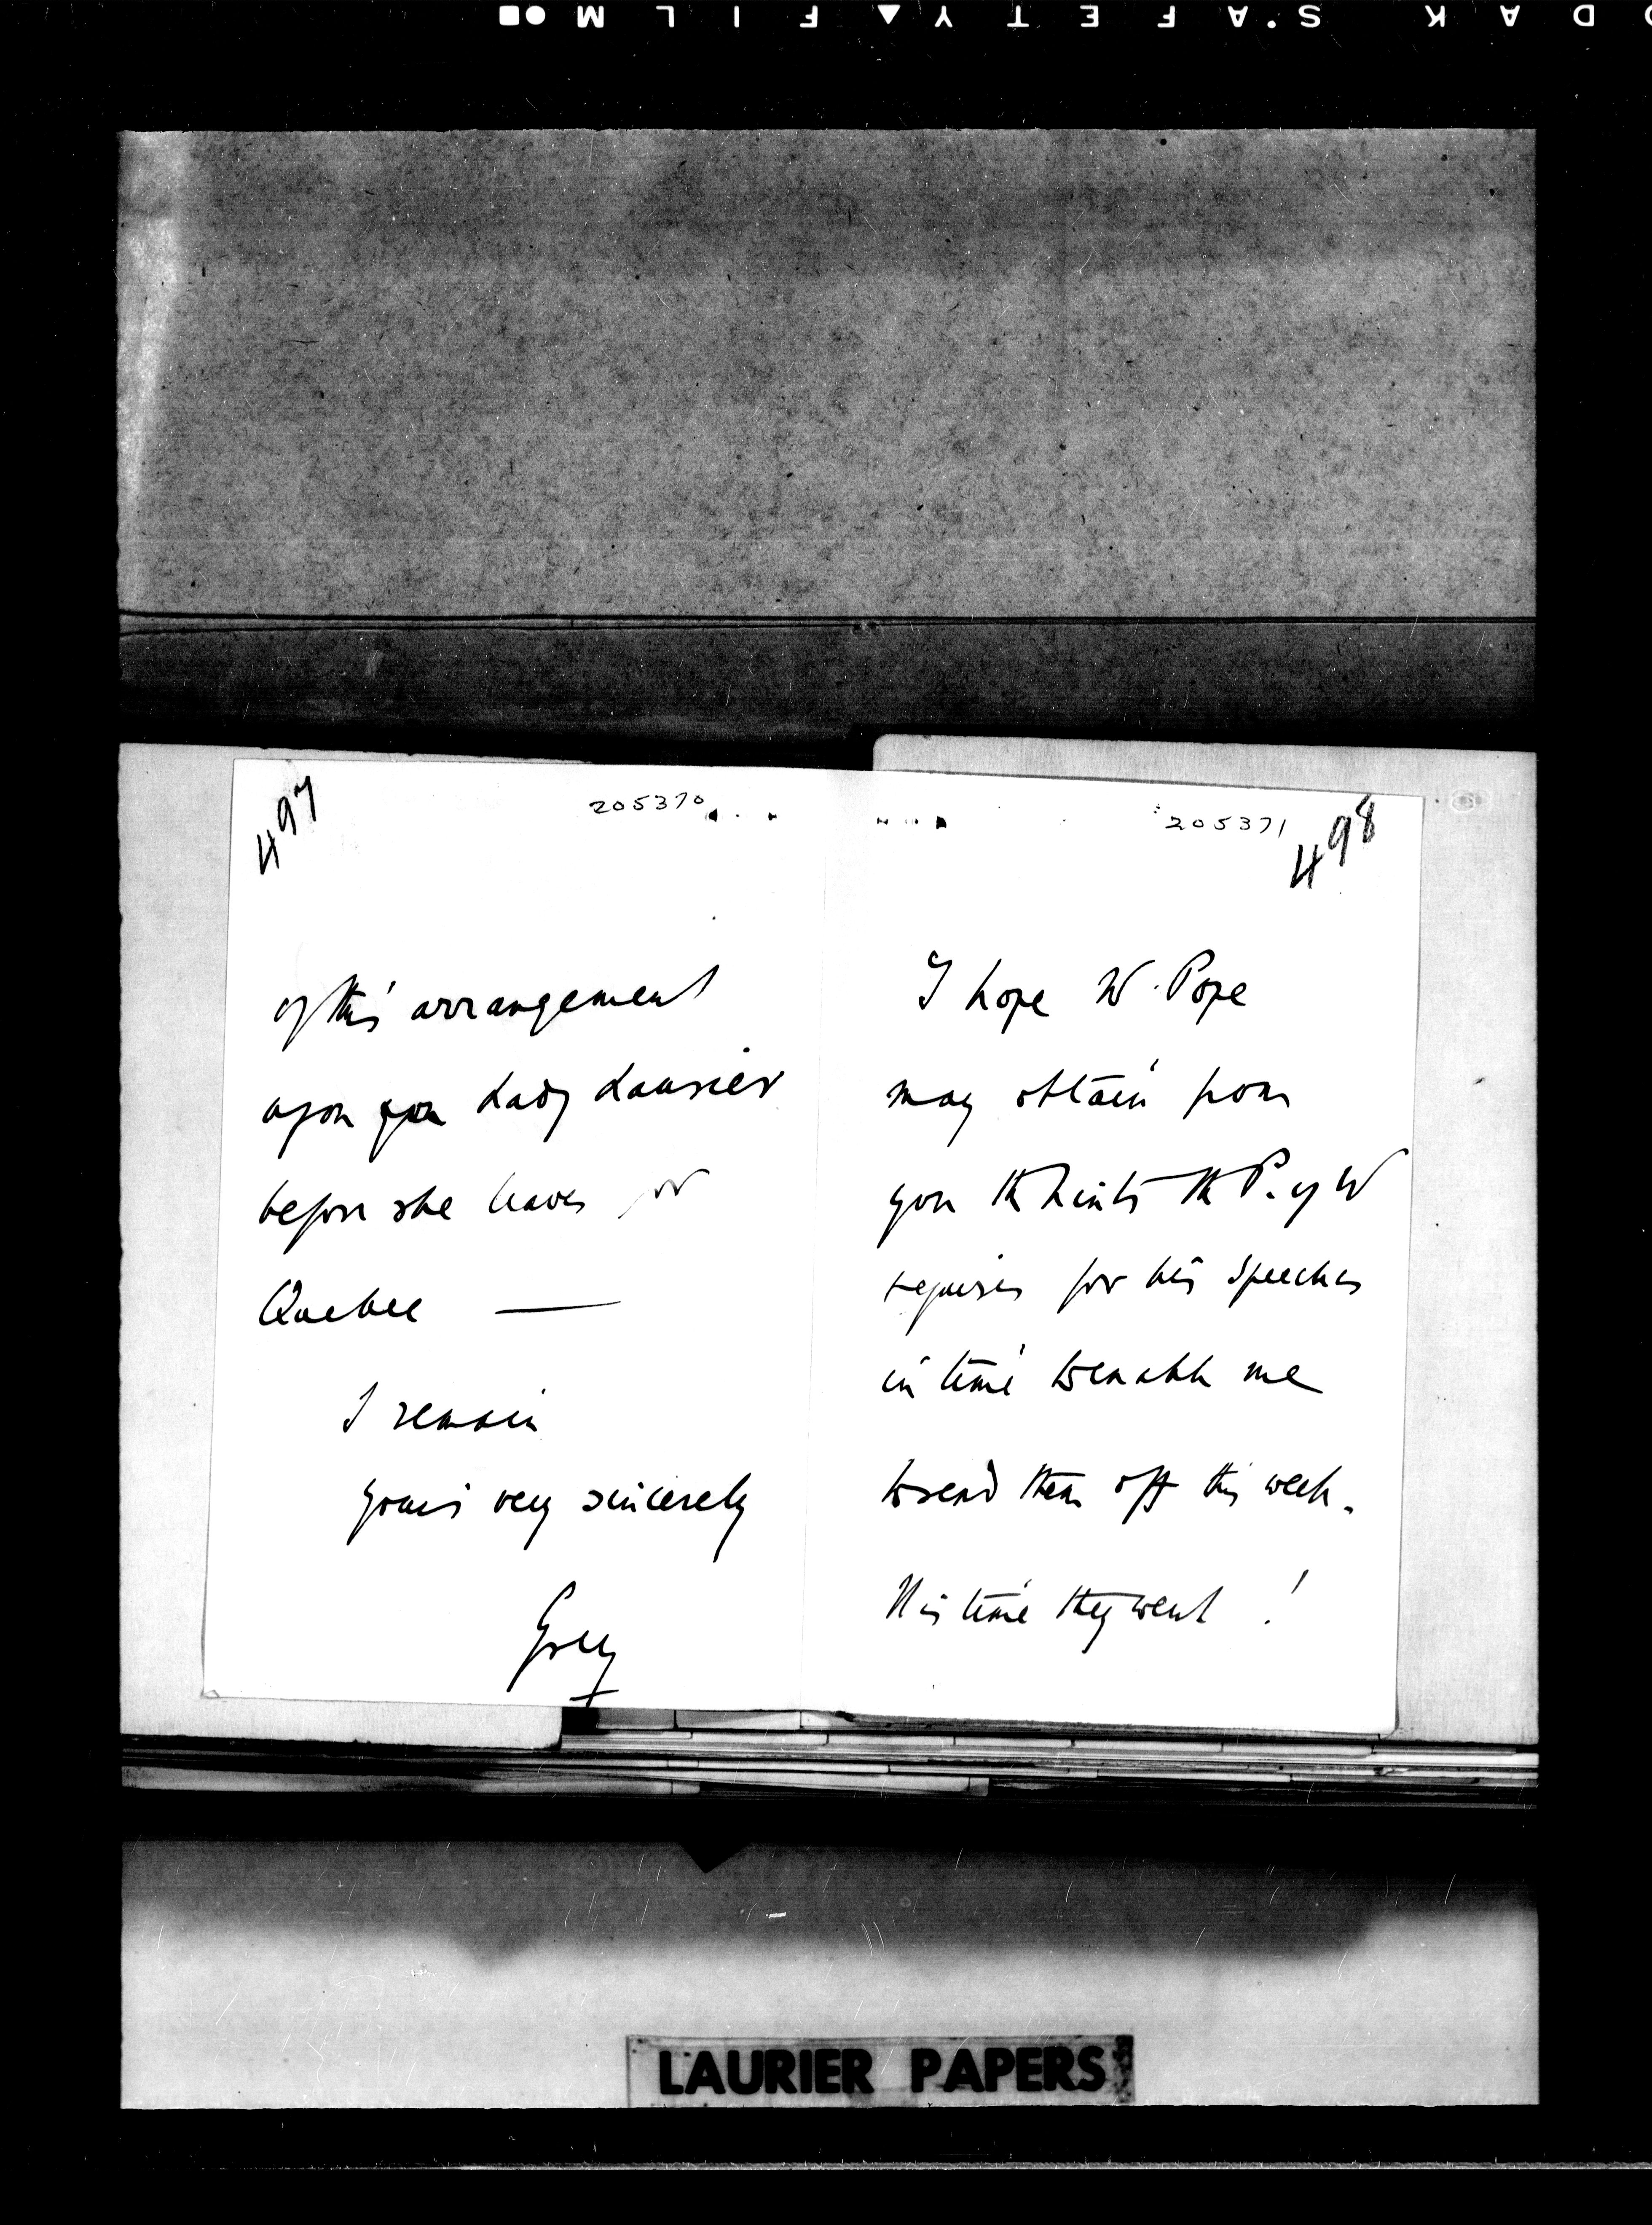 KODAK S'AFETY FILM
497
205370
of this arrangement
upon you Lady Laurier
before she leaves for
Quebec —
I remain
Yours very sincerely
Grey
205371
498
I hope W. Pope
may obtain from
you the hints the P. of W
requires for his speeches
in time to enable me
to send them off this week.
It is time they went !
LAURIER PAPERS